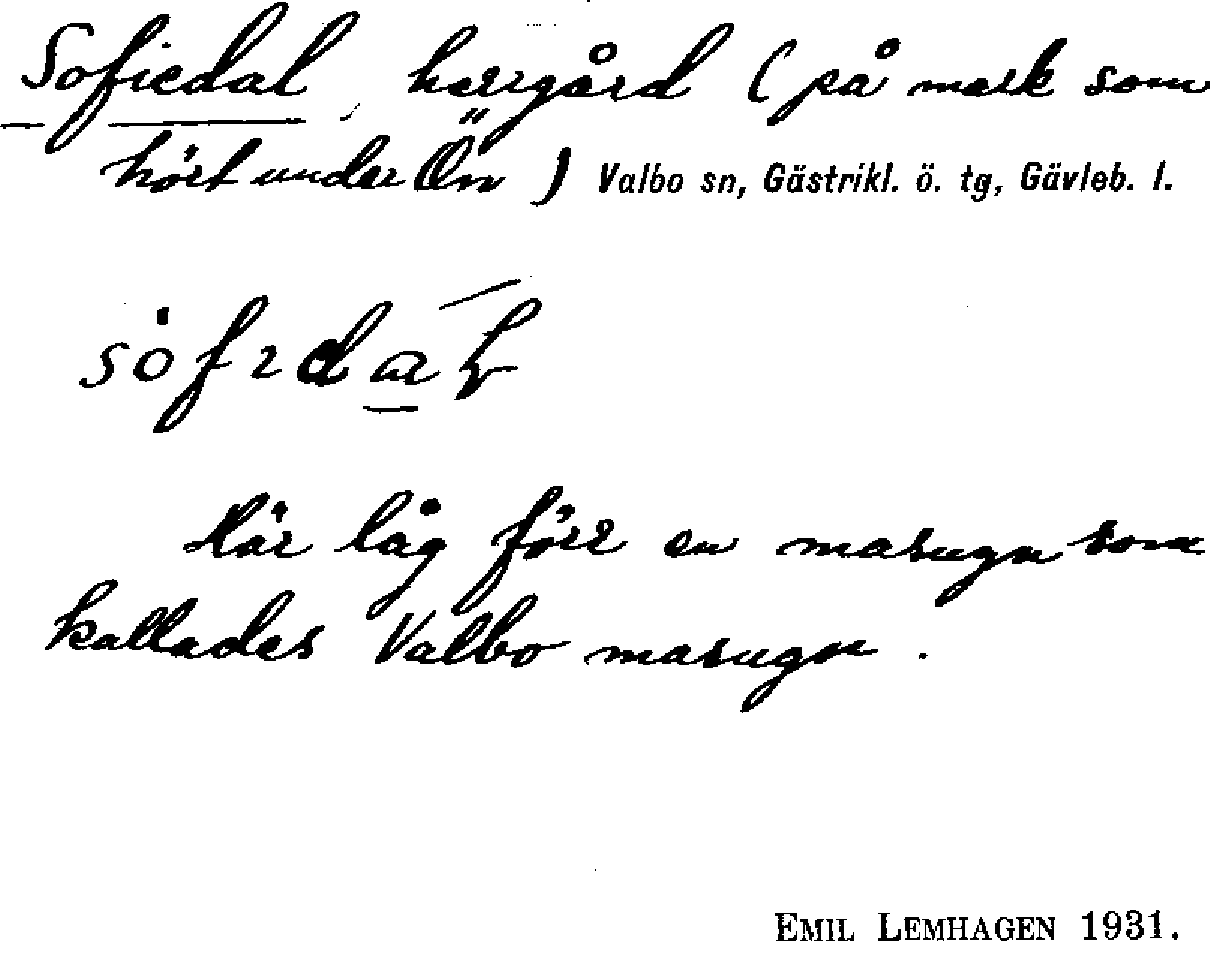 Sofiedal, herrgård (på mark som
hört under Ön) Valbo sn, Gästrikl. ö. tg, Gävleb. l.
Här låg förr en masugn som
kallades Valbo masugn.
EMIL LEMHAGEN 1931.